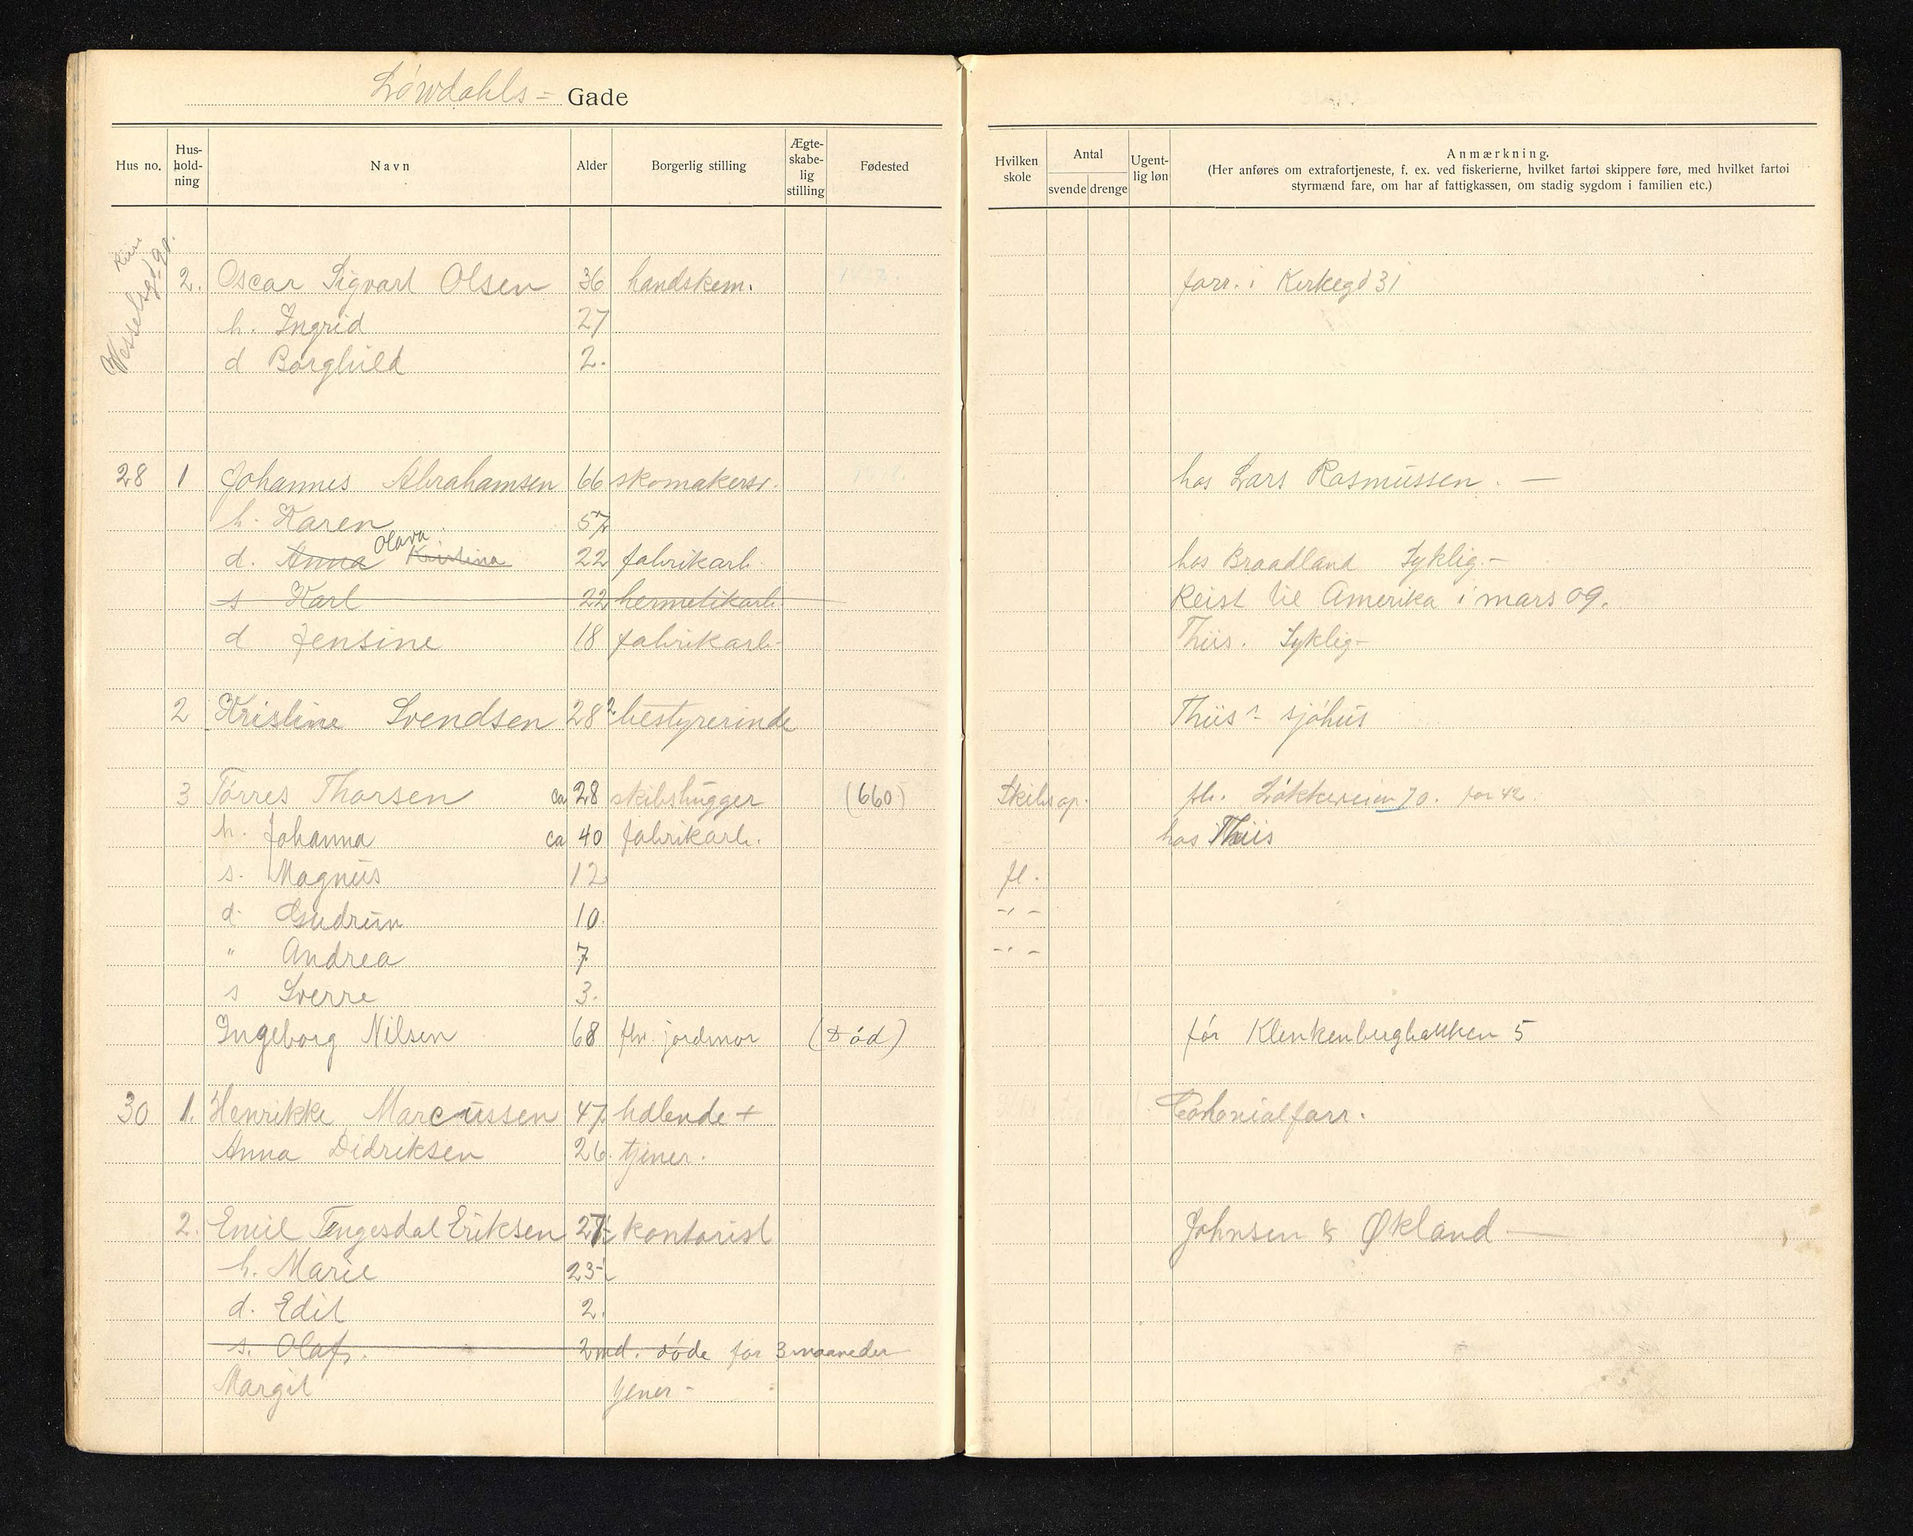 Løwdahls= Gade
Hus no. Hus-hold-ning Navn Alder Borgerlig stilling Ægte-skabe-lig stilling Fødested Hvilken skole Antal svende drenge Ugent-lig løn Anmærkning.
(Her anføres om extrafortjeneste, f. ex. ved fiskerierne, hvilket fartøi skippere føre, med hvilket fartøi
styrmænd fare, om har af fattigkassen, om stadig sygdom i familien etc.)
2. Oscar Sigvart Olsen 36 handskem. forr. i Kirkegd 31
h. Ingrid 27
d Borghild 2.
28 1 Johannes Abrahamsen 66 skomakersv. hos Lars Rasmussen. —
h. Karen 57
d. Anna Olava Kristina 22 fabrikarb. hos Braadland Syklig.-
s Karl 22 hermetikarb. Reist til Amerika i mars 09.
d Jensine 18 fabrikarb- Thiis. Syklig-
2 Kristine Svendsen 28 bestyrerinde Thiis sjøhus
3 Tørres Thorsen ca 28 skibshugger (660) Skibsop. Løkkeveien 70. for 42
h. Johanna ca 40 fabrikarb. hos Thiis
s. Magnus 12 fl.
d. Gudrun 10. -"-
" Andrea 7 -"-
s Sverre 3.
Ingeborg Nilsen 68 fhv. jordmor (død) før Klenkenbergbakken 5
30 1. Henrikke Marcussen 47 hdlende + Colonialforr.
Anna Didriksen 26. tjener.
2. Emil Tengesdal Eriksen 27 kontorist Johnsen & Økland —
h. Marie 23
d. Edit 2.
s. Olaf. 2 md. døde for 3 maaneder
Margit tjener-